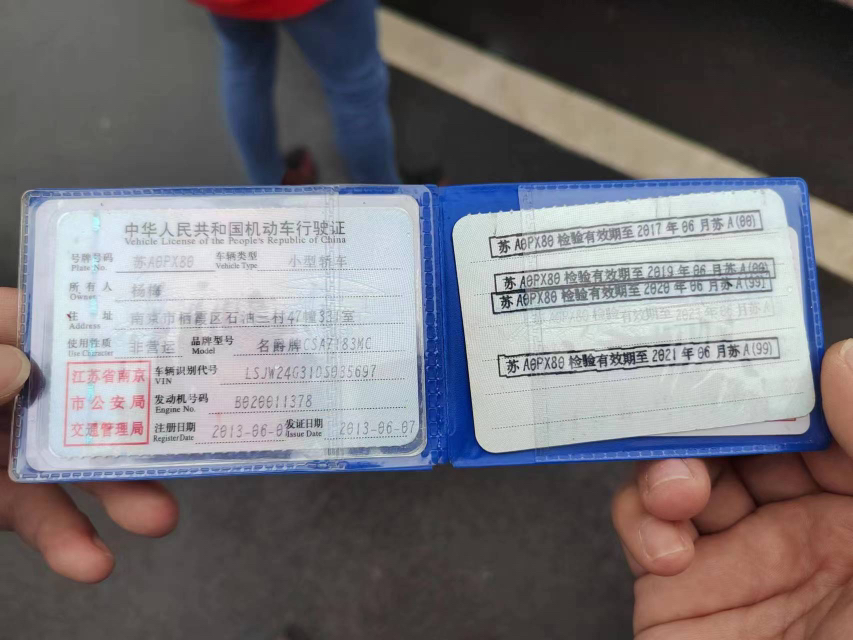 中华人民共和国机动车行驶证
Vehicle License of the People's Republic of China
号牌号码 苏A0PX80 车辆类型 小型轿车
Plate No. Vehicle Type
所有人 杨
Owner
住址 南京市栖霞区石油三村47幢331室
Address
使用性质 非营运 品牌型号 名爵牌CSA7183MC
Use Character Model
江苏省南京
市公安局
交通管理局
车辆识别代号 LSJW24G31DS035697
VIN
发动机号码 B020011378
Engine No.
注册日期 2013-06-07 发证日期 2013-06-07
Register Date Issue Date
苏A0PX80 检验有效期至 2017 年 06 月苏A(00)
苏A0PX80 检验有效期至 2019 年 06 月苏A(99)
苏A0PX80 检验有效期至 2020 年 06 月苏A(99)
苏A0PX80 检验有效期至 2021 年 06 月苏A(99)